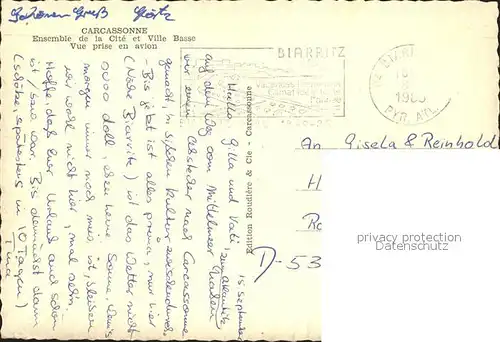 Schönen Gruß Götz
CARCASSONNE
Ensemble de la Cité et Ville Basse
Vue prise en avion
BIARRITZ
15. September
Hallo, Gilla und Vati,
auf dem Weg vom Mittelmeer zum Atlantik
wir einen Abstecher nach Carcassonne
gemacht, in süßen Kultur
- Bis jetzt ist alles prima, nur hier
(Nähe Biarritz) ist das Wetter nicht
soooo doll, eben keine Sonne. Wenn's
morgen immer noch mies ist, bleiben
wir wohl nicht hier, mal seh'n.
Hoffe, daß Euer Urlaub auch schön
ist / bzw. war. Bis demnächst dann
(schätze, spätestens in 10 Tagen)
Tina
Edition Roudière & Cie - Carcassonne
PYR. ATL.
An Gisela & Reinhold
H
D-53
privacy protection
Datenschutz